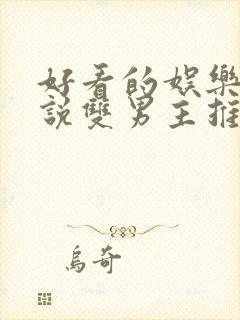 好看的娛樂
說雙男主推
烏奇